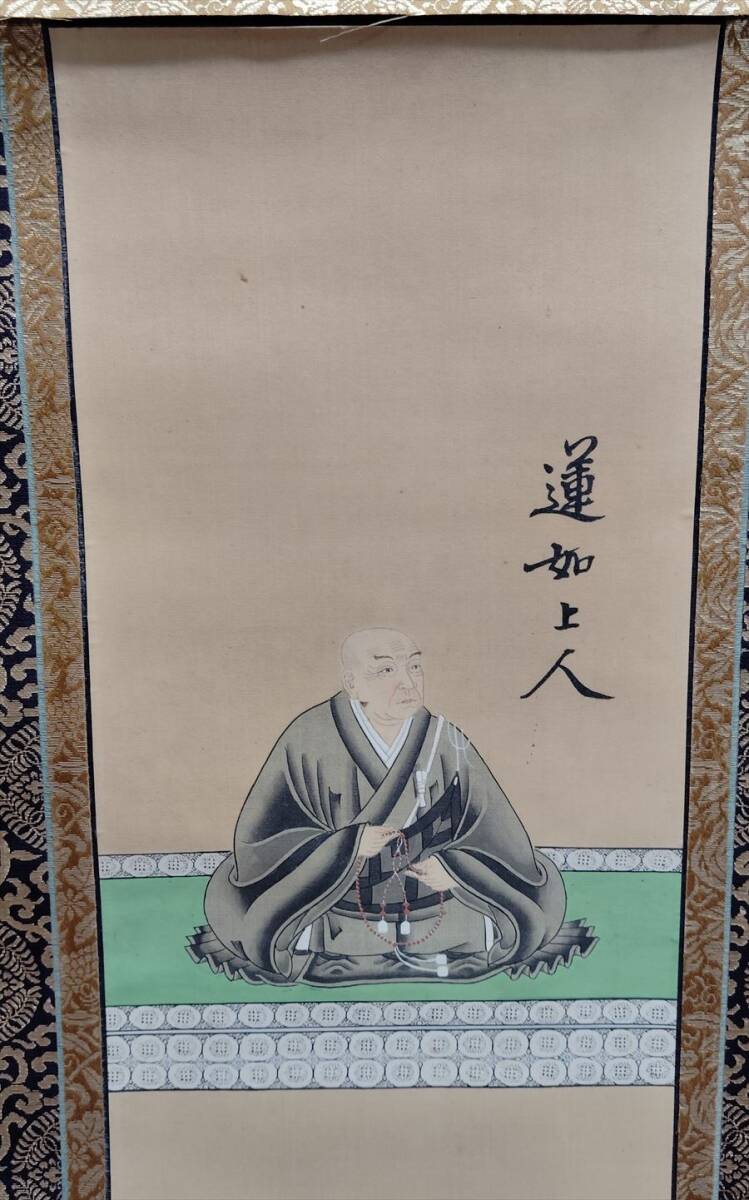 蓮如上人